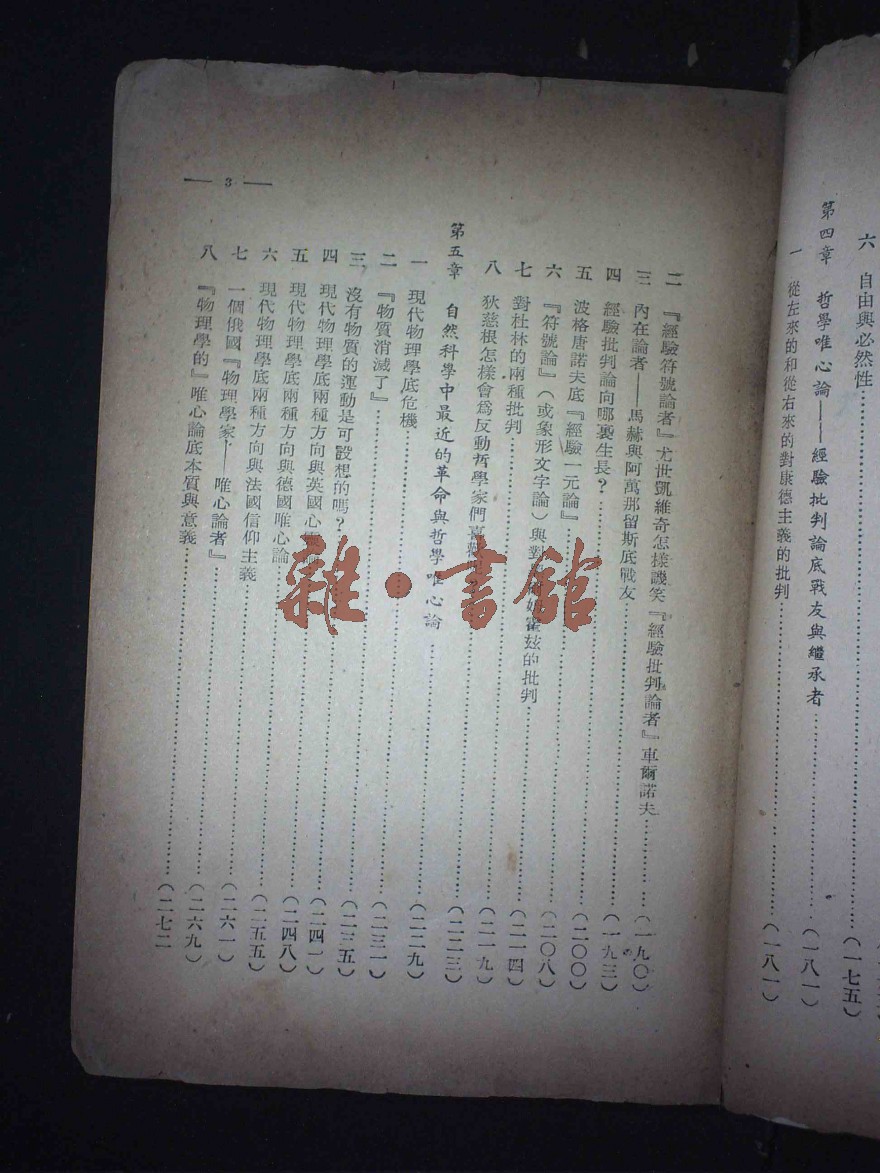 六 自由與必然性……(一七五)
第四章 哲學唯心論——經驗批判論底戰友與繼承者……(一八一)
一 從左來的和從右來的對康德主義的批判……(一八一)
二 『經驗符號論者』尤世凱維奇怎樣譏笑『經驗批判論者』車爾諾夫……(一九〇)
三 內在論者——馬赫與阿萬那留斯底戰友……(一九三)
四 經驗批判論向哪裏生長?……(二〇〇)
五 波格唐諾夫底『經驗一元論』……(二〇八)
六 『符號論』(或象形文字論)與對霍茲的批判……(二一四)
七 對杜林的兩種批判……(二一九)
八 狄慈根怎樣會爲反動哲學家們喜歡……(二二三)
第五章 自然科學中最近的革命與哲學唯心論……(二二九)
一 現代物理學底危機……(二三一)
二 『物質消滅了』……(二三五)
三 沒有物質的運動是可設想的嗎?……(二四一)
四 現代物理學底兩種方向與英國心論……(二四八)
五 現代物理學底兩種方向與德國唯心論……(二五五)
六 現代物理學底兩種方向與法國信仰主義……(二六一)
七 一個俄國『物理學家——唯心論者』……(二六九)
八 『物理學的』唯心論底本質與意義……(二七二
— 3 —
雜·書館